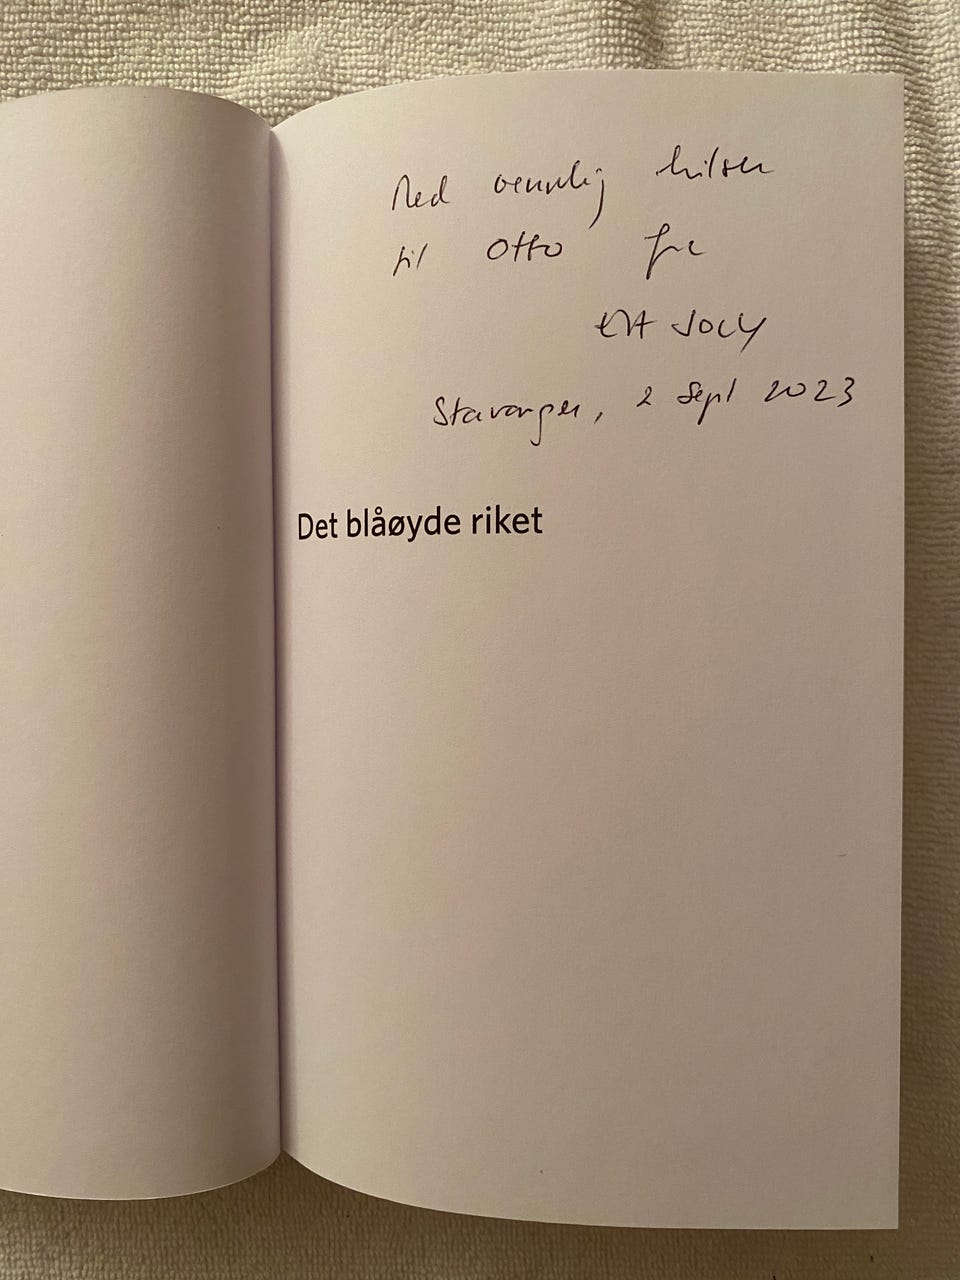 Med vennlig hilsen
til Otto fra
EVA JOLY
Stavanger, 2 Sept 2023
Det blåøyde riket